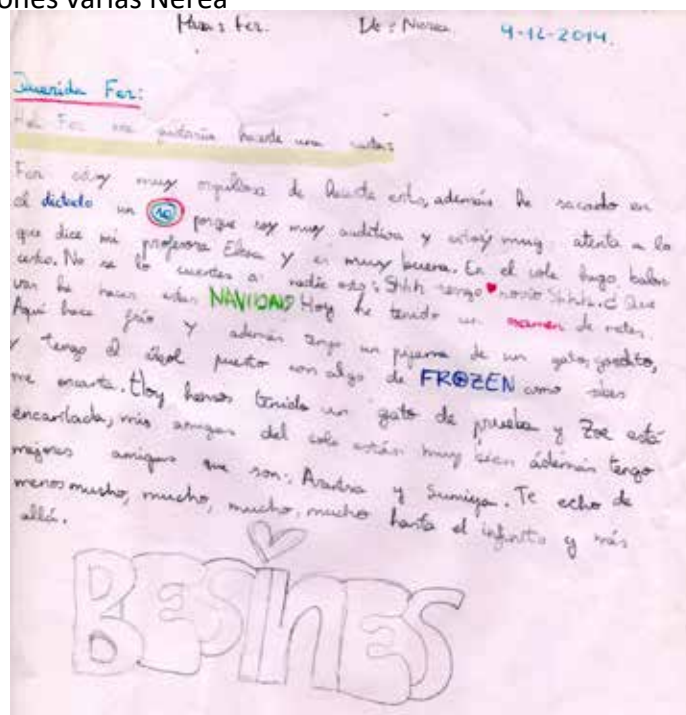 ones varias Nerea
Para: Fer. De: Nerea. 9-12-2014.
Querida Fer:
Hola Fer me gustaría hacerte una carta:
Fer estoy muy orgullosa de hacerte esto, además he sacado en
el dictado un 10 porque soy muy auditiva y estoy muy atenta a lo
que dice mi profesora Elena y es muy buena. En el cole hago balon
cesto. No se lo cuentes a nadie esto: Shhh tengo novio Shhhh. ¿ Que
vas ha hacer estas NAVIDAD Hoy he tenido un examen de mates.
Aquí hace frío y además tengo un pijama de un gato, gordito,
y tengo el árbol puesto con algo de FROZEN como sabes
me encanta. Hoy hemos tenido un gato de prueba y Zoe está
encantada, mis amigas del cole están muy bien además tengo
mejores amigas que son: y Sumiya. Te echo de
menos mucho, mucho, mucho, mucho hasta el infinito y más
allá.
BESINES